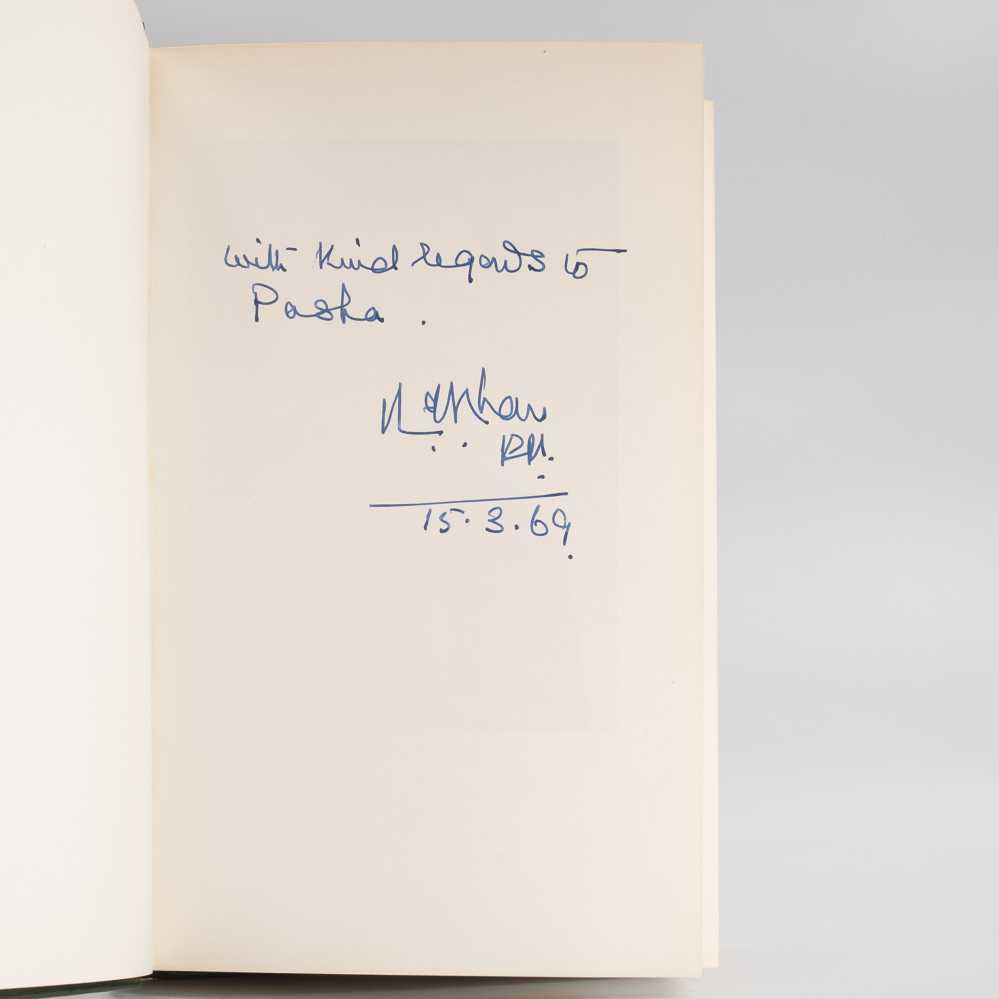 with kind regards to
Pasha.
15.3.69.